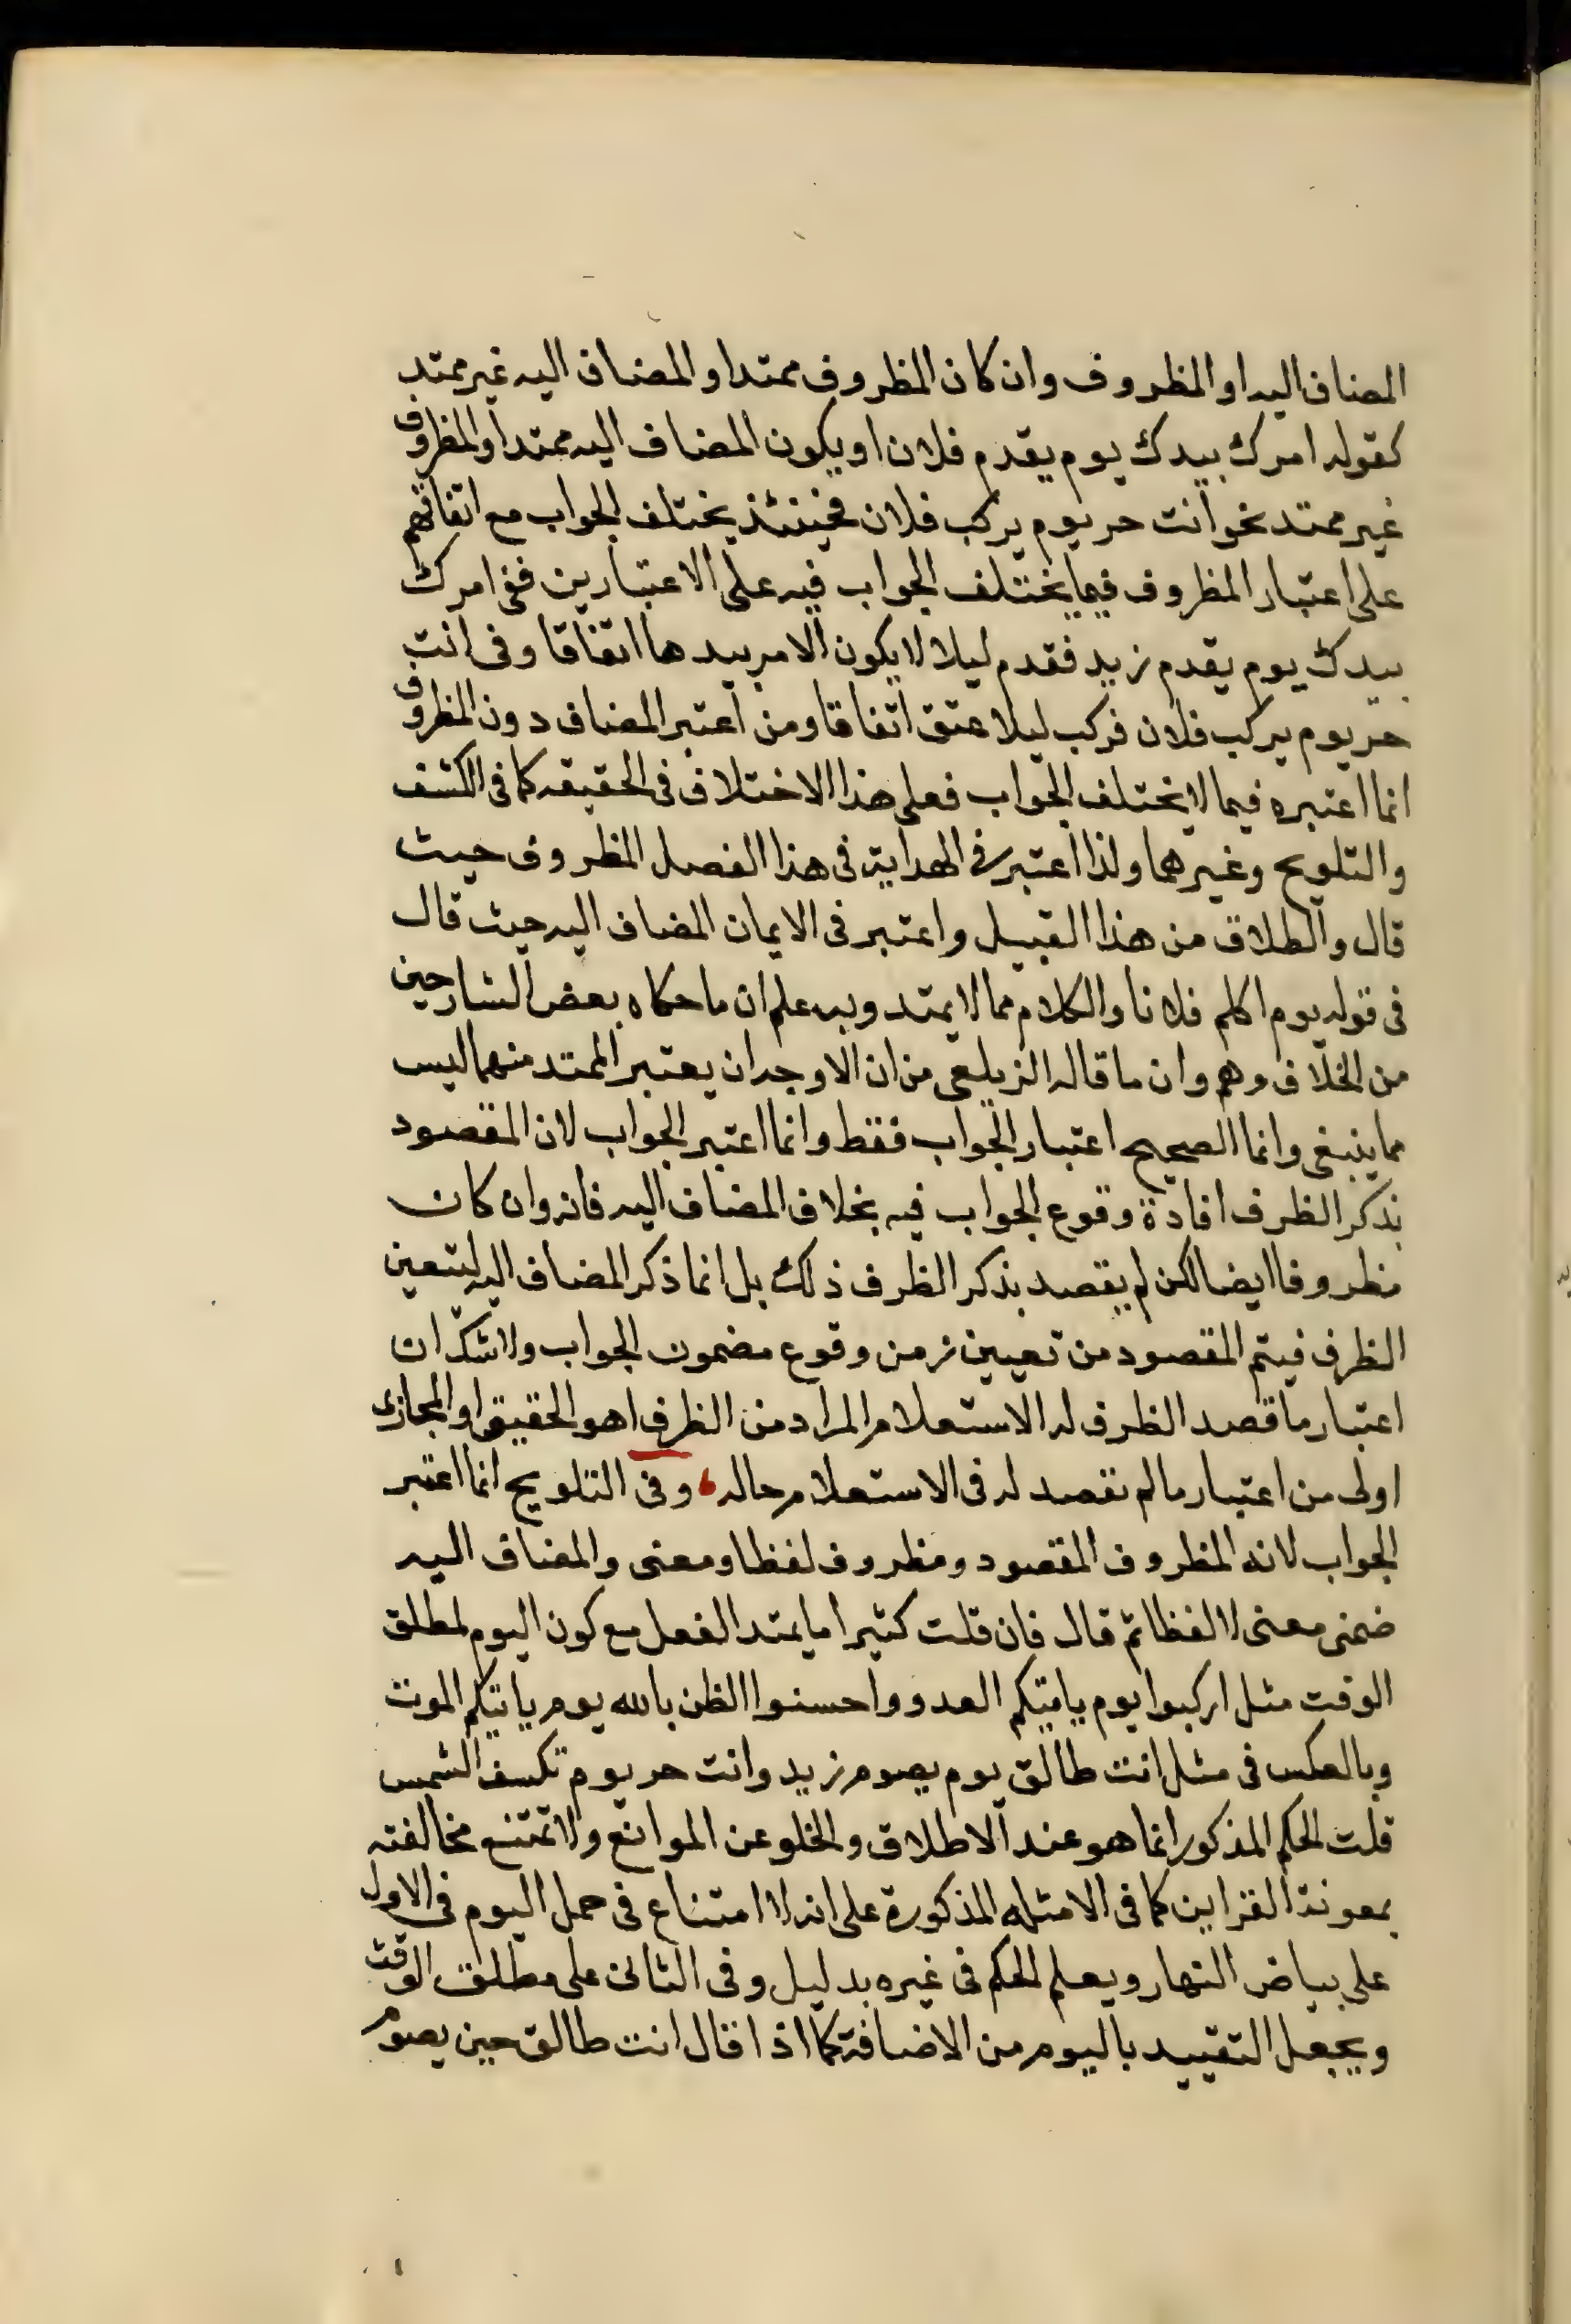 المضاف اليه او المظروف وان كان المظروف ممتدا والمضاف اليه غير ممتد
كقوله امرك بيدك يوم يقدم فلان او يكون المضاف اليه ممتدا والمظروف
غير ممتد نحو انت حر يوم يركب فلان فحينئذ يختلف الجواب مع اتفاقهم
على اعتبار المظروف فيما يختلف الجواب فيه على الاعتبارين ففى امرك
بيدك يوم يقدم زيد فقدم ليلا لا يكون الامر بيدها اتفاقا وفى انت
حر يوم يركب فلان فركب ليلا عتق اتفاقا ومن اعتبر المضاف دون المظروف
انما اعتبره فيما لا يختلف الجواب فعلى هذا الاختلاف فى الحقيقه كما فى الكشف
والتلويح وغيرهما ولذا اعتبر فى الهداية فى هذا الفصل المظروف حيث
قال والطلاق من هذا القبيل واعتبر فى الايمان المضاف اليه حيث قال
فى قوله يوم اكلم فلانا والكلام مما لا يمتد وبه علم ان ما حكاه بعض الشارحين
من الخلاف وهم وان ما قاله الزيلعى من ان الاوجه ان يعتبر الممتد منهما ليس
مما ينبغى وانما الصحيح اعتبار الجواب فقط وانما اعتبر الجواب لان المقصود
بذكر الظرف افادة وقوع الجواب فيه بخلاف المضاف اليه فانه وان كان
مظروفا ايضا لكن لم يقصد بذكر الظرف ذلك بل انما ذكر المضاف اليه ليتعين
الظرف فيتم المقصود من تعيين زمن وقوع مضمون الجواب ولا شك ان
اعتبار ما قصد الظرف له الاستعلام المراد من الظرف اهو الحقيقى او المجازى
اولى من اعتبار ما لم نقصد له فى الاستعلام حاله، وفى التلويح انما اعتبر
الجواب لانه المظروف المقصود ومظروف لفظا ومعنى والمضاف اليه
ضمنى معنى لا لفظا ثم قال فان قلت كثيرا ما يمتد الفعل مع كون اليوم لمطلق
الوقت مثل اركبوا يوم ياتيكم العدو واحسنوا الظن بالله يوم ياتيكم الموت
وبالعكس فى مثل انت طالق يوم يصوم زيد وانت حر يوم تكسف الشمس
قلت الحكم المذكور انما هو عند الاطلاق والخلو عن الموانع ولا تمتنع مخالفته
بمعونة القراين كما فى الامثله المذكورة على انه لا امتناع فى حمل اليوم فى الاول
على بياض النهار ويعلم الحكم فى غيره بدليل وفى الثانى على مطلق الوقت
ويجعل التقييد باليوم من الاضافة كما اذا قال انت طالق حين يصوم